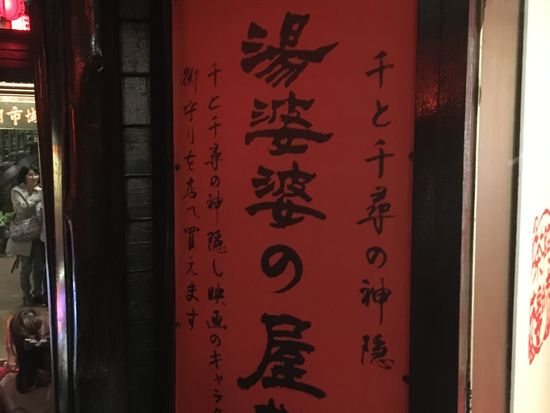 千と千尋の神隠
湯婆婆の屋
千と千尋の神隠し映画のキャラ
御守りを店て買えます